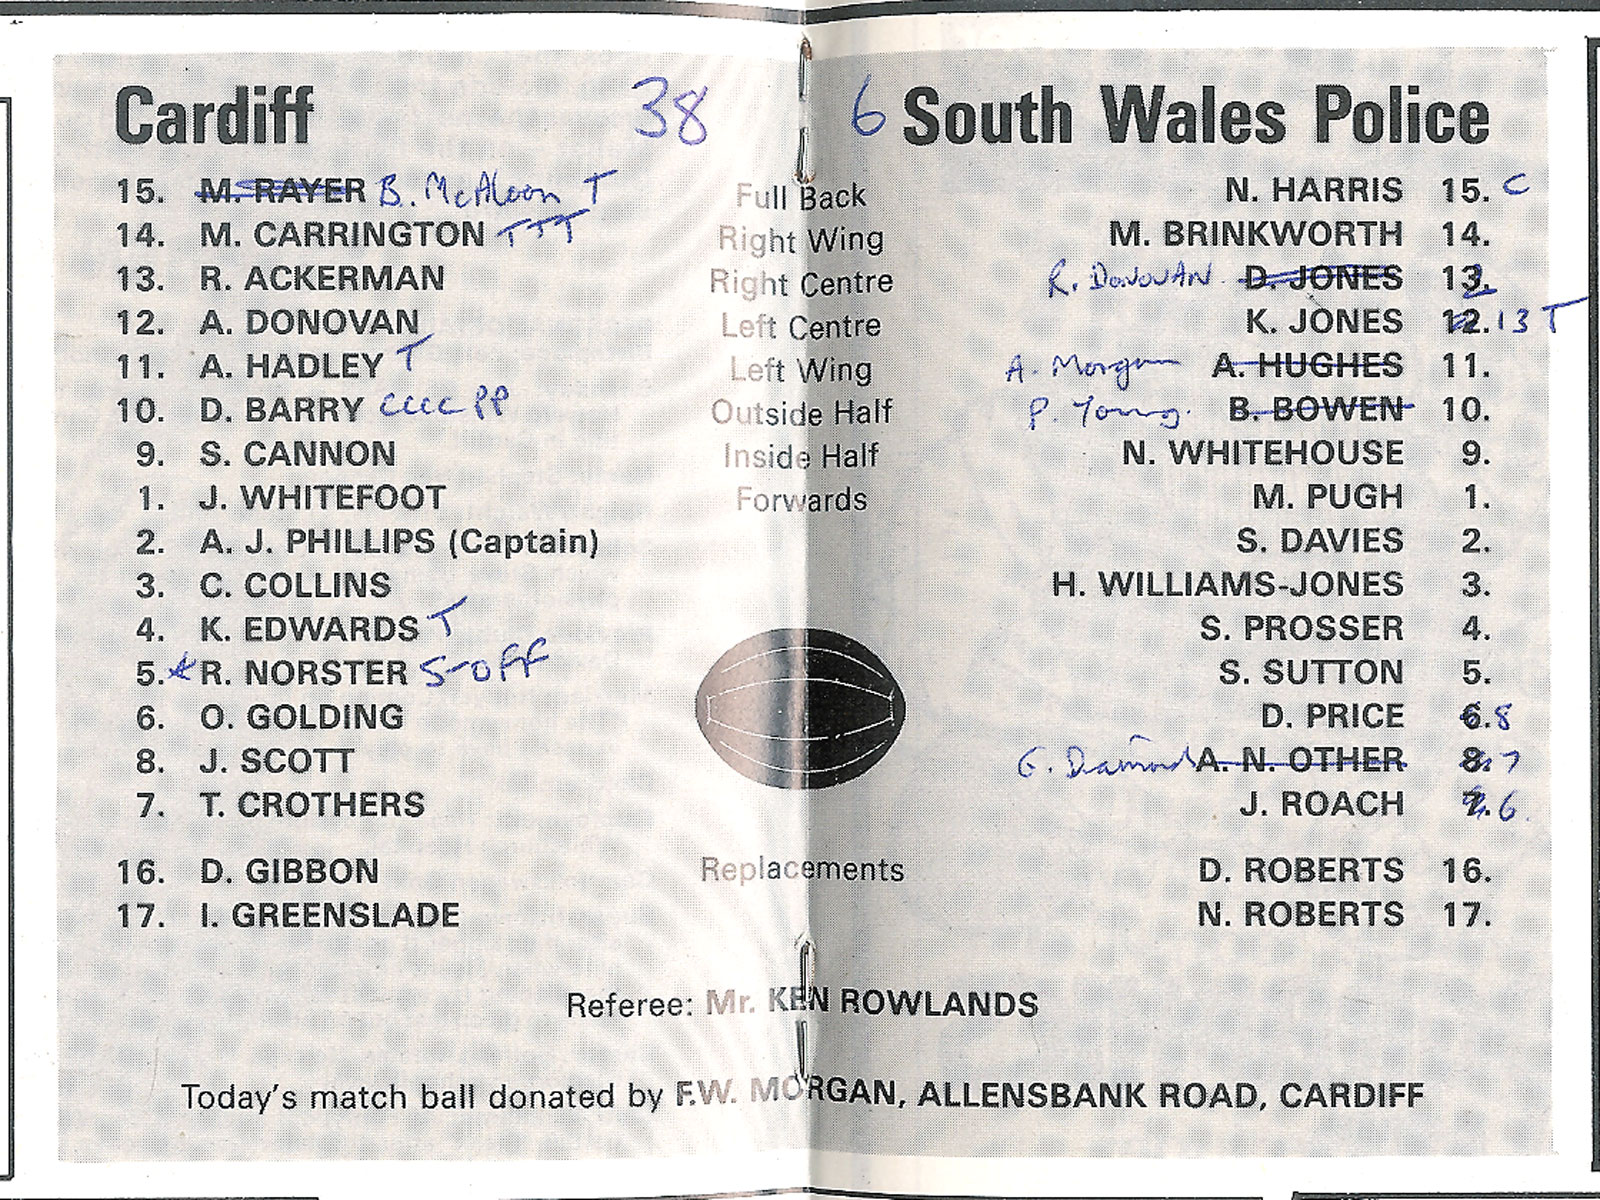 Cardiff 38 6 South Wales Police
15. M. RAYER B. McAloon T Full Back N. HARRIS 15. C
14. M. CARRINGTON TTT Right Wing M. BRINKWORTH 14.
13. R. ACKERMAN Right Centre R. DONOVAN D. JONES 13.
12. A. DONOVAN Left Centre K. JONES 12. 13 T
11. A. HADLEY T Left Wing A. Morgan A. HUGHES 11.
10. D. BARRY CCCC PP Outside Half P. Young. B. BOWEN 10.
9. S. CANNON Inside Half N. WHITEHOUSE 9.
1. J. WHITEFOOT Forwards M. PUGH 1.
2. A. J. PHILLIPS (Captain) S. DAVIES 2.
3. C. COLLINS H. WILLIAMS-JONES 3.
4. K. EDWARDS T S. PROSSER 4.
5. R. NORSTER S-OFF S. SUTTON 5.
6. O. GOLDING D. PRICE 6. 8
8. J. SCOTT A. N. OTHER 8. 7
7. T. CROTHERS J. ROACH 7. 6
16. D. GIBBON Replacements D. ROBERTS 16.
17. I. GREENSLADE N. ROBERTS 17.
Referee: Mr. KEN ROWLANDS
Today's match ball donated by F.W. MORGAN, ALLENSBANK ROAD, CARDIFF